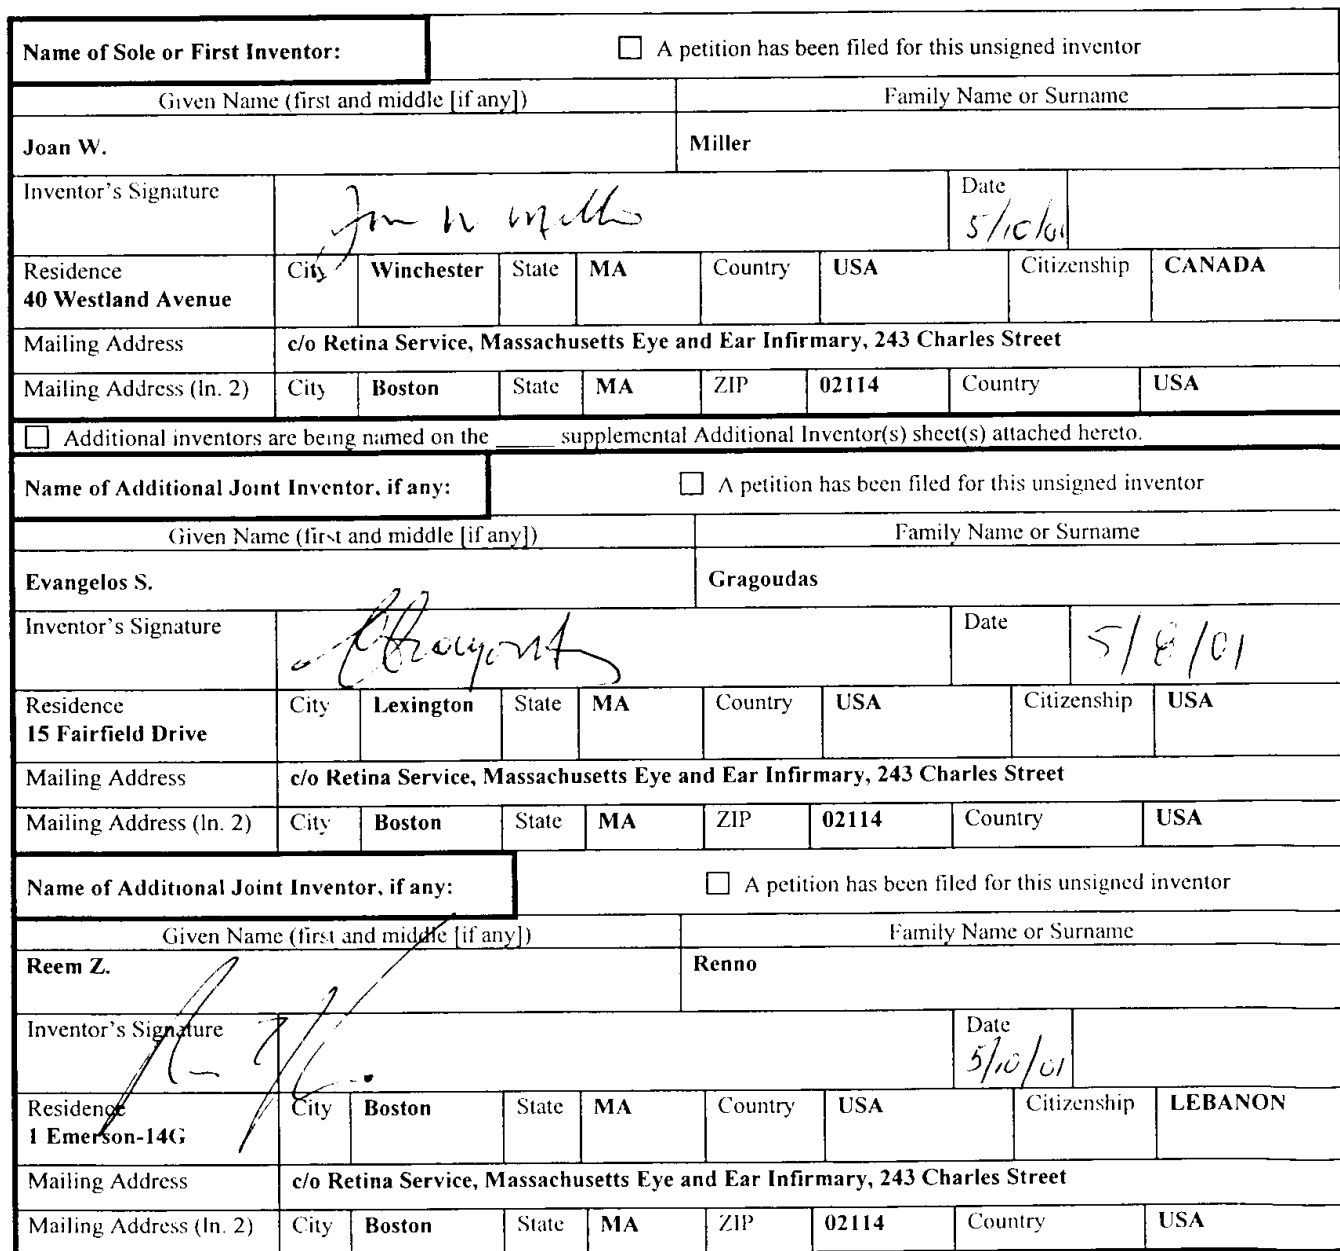 Name of Sole or First Inventor: ☐ A petition has been filed for this unsigned inventor
Given Name (first and middle [if any]) Family Name or Surname
Joan W. Miller
Inventor's Signature Joan W Miller Date 5/10/01
Residence City Winchester State MA Country USA Citizenship CANADA
40 Westland Avenue
Mailing Address c/o Retina Service, Massachusetts Eye and Ear Infirmary, 243 Charles Street
Mailing Address (ln. 2) City Boston State MA ZIP 02114 Country USA
☐ Additional inventors are being named on the _____ supplemental Additional Inventor(s) sheet(s) attached hereto.
Name of Additional Joint Inventor, if any: ☐ A petition has been filed for this unsigned inventor
Given Name (first and middle [if any]) Family Name or Surname
Evangelos S. Gragoudas
Inventor's Signature Date 5/8/01
Residence City Lexington State MA Country USA Citizenship USA
15 Fairfield Drive
Mailing Address c/o Retina Service, Massachusetts Eye and Ear Infirmary, 243 Charles Street
Mailing Address (ln. 2) City Boston State MA ZIP 02114 Country USA
Name of Additional Joint Inventor, if any: ☐ A petition has been filed for this unsigned inventor
Given Name (first and middle [if any]) Family Name or Surname
Reem Z. Renno
Inventor's Signature Date 5/10/01
Residence City Boston State MA Country USA Citizenship LEBANON
1 Emerson-14G
Mailing Address c/o Retina Service, Massachusetts Eye and Ear Infirmary, 243 Charles Street
Mailing Address (ln. 2) City Boston State MA ZIP 02114 Country USA